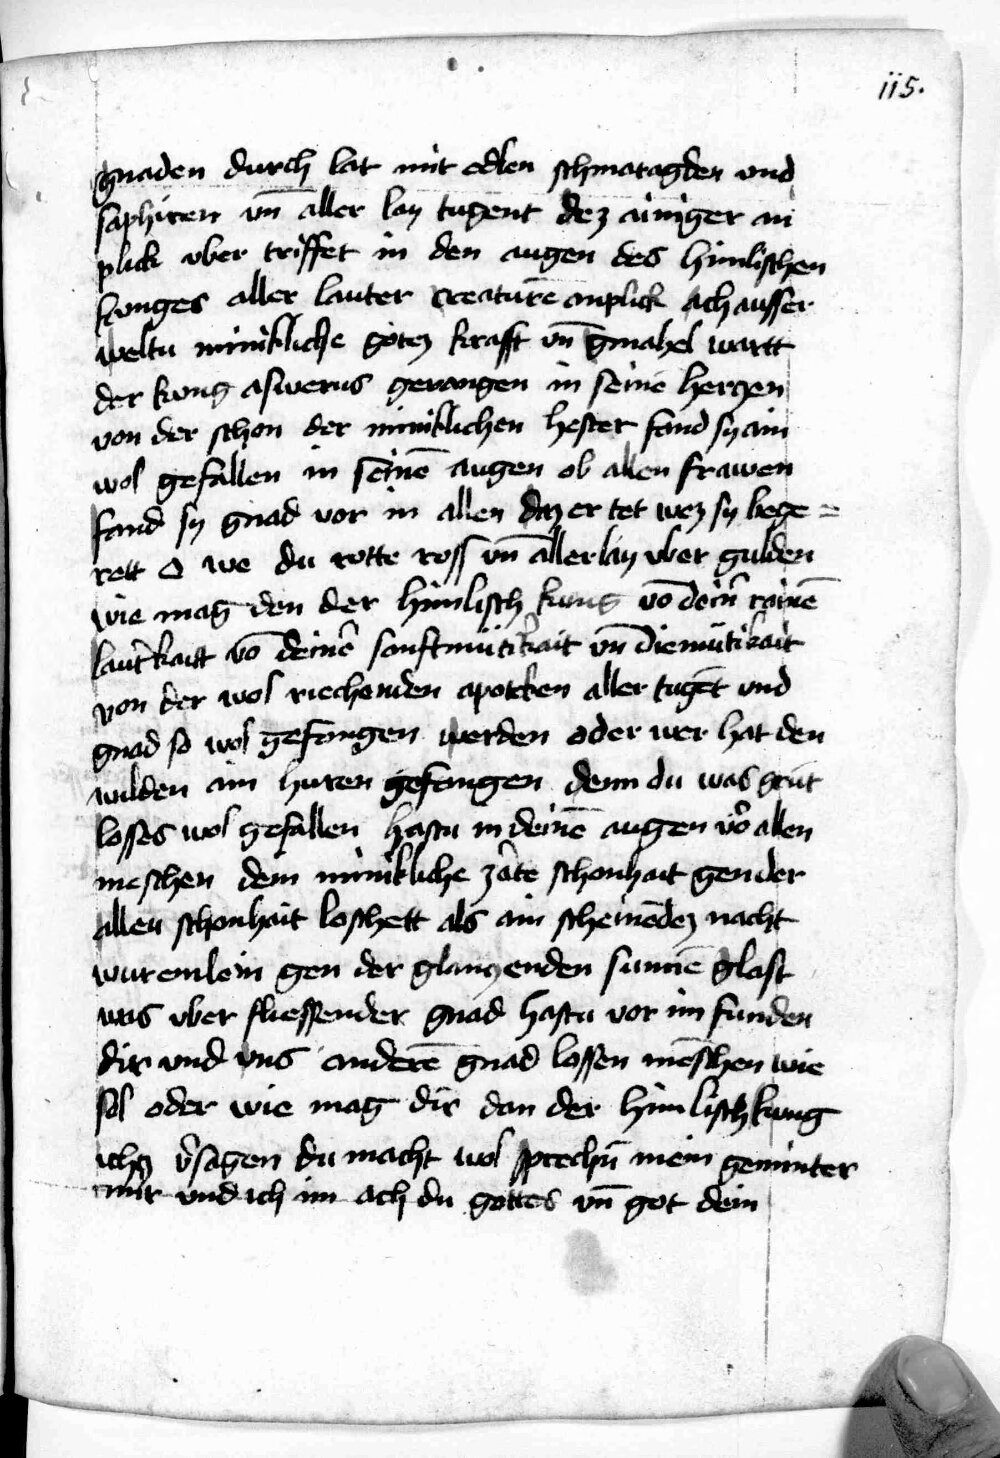 115.
gnaden durch lat mit edlen schmaragden und
saphiren vn̄ aller lay tugent dez ainiger an
plick vber triffet in den augen des himlischen
kunges aller lauter creaturē anplick ach ausser
weltu minikliche gotez krafft vn̄ gmahel wartt
der kung aswerus gevangen in seinē herczen
von der schon der miniklichen hester fand sy ain
wol gefallen in seinē augen ob allen frawen
fand sy gnad vor in allen daz er tet wez sy bege =
rett O we du rotte ross vn̄ allerlay vber gulden
wie mag den der himlisch kung vō dein̄ rainē
laut̄kaitt vō deinē senftmütikait vn̄ diemütikait
von der wol riechenden apotcken aller tugēt und
gnad so wol gefangen werden oder wer hat den
wilden ain huren gefangen denn du was grūt
losses wol gefallen hastu in deinē augen vō allen
meschen dein minikliche zarte schonhait gen der
allen schonhait loschett als ain scheinēdez nacht
wuremlein gen der glanczenden sunnē glast
was vber fliessender gnad hastu vor im funden
dir und vns anderē gnad lossen mēschen wie
sol oder wie mag dir dan der himlisch kung
ichcz v̄sagen du macht wol sprechn̄ mein geminter
mir und ich im ach du gottes vn̄ got dein